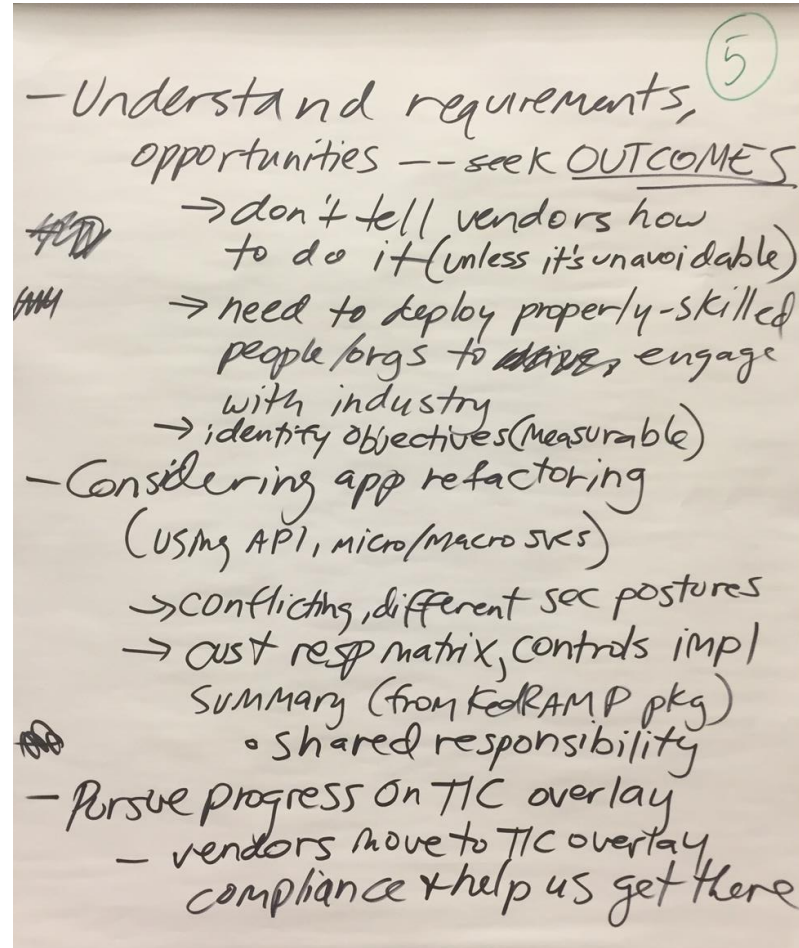 5
- Understand requirements,
opportunities -- seek OUTCOMES
→ don't tell vendors how
to do it (unless it's unavoidable)
→ need to deploy properly-skilled
people/orgs to engage
with industry
→ identify objectives (measurable)
- Considering app refactoring
(using API, micro/macro svcs)
→ conflicting, different sec postures
→ cust resp matrix, controls impl
summary (from FedRAMP pkg)
• shared responsibility
- Pursue progress on TIC overlay
- vendors move to TIC overlay
compliance + help us get there